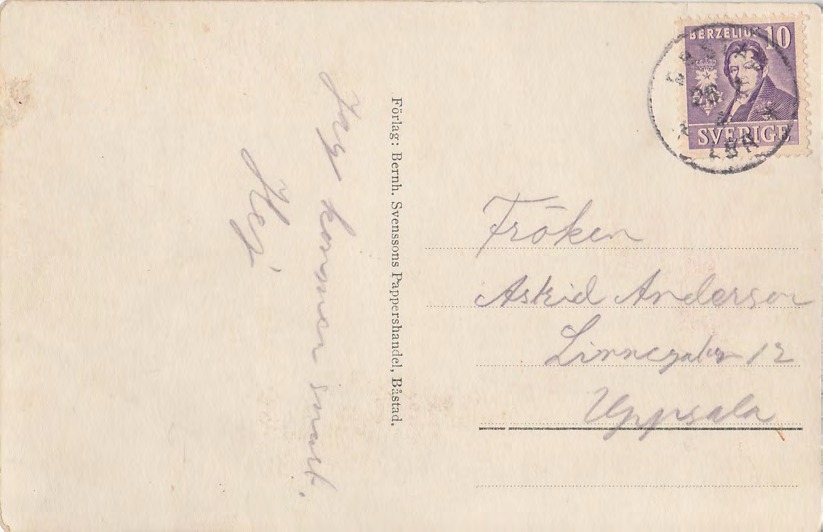 Jag kommer snart.
Hej
Förlag: Bernh. Svenssons Pappershandel, Båstad.
BERZELIUS 10
SVERIGE
Fröken
Astrid Anderson
Linnegatan 12
Uppsala